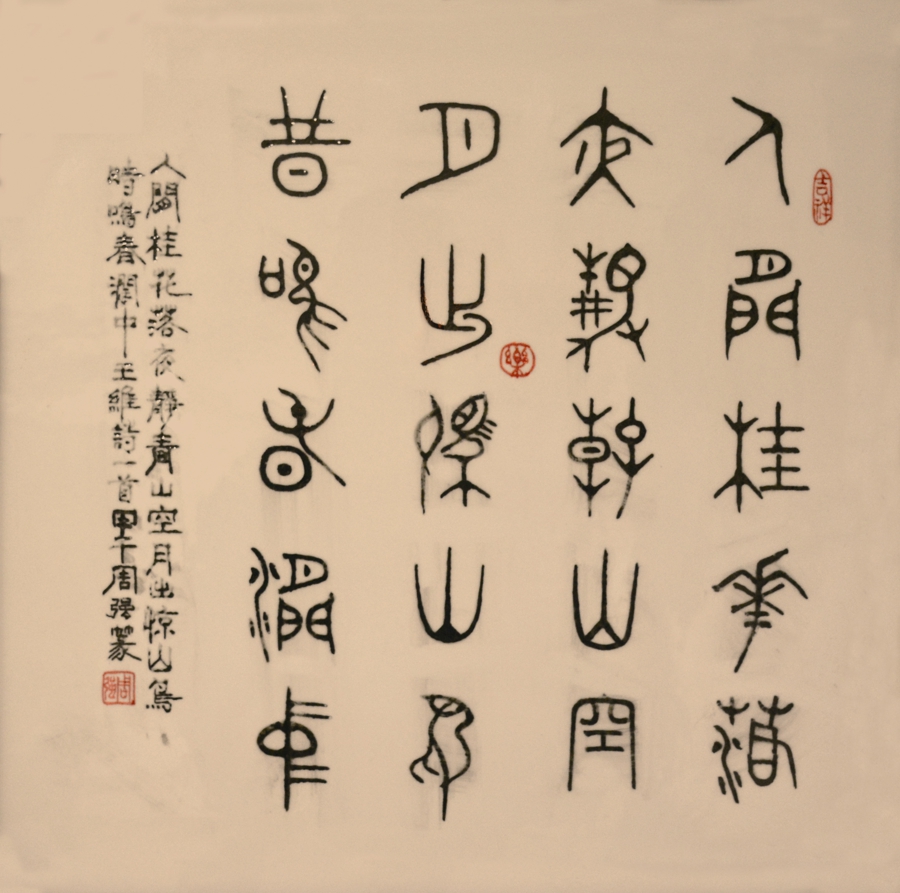 吉祥
人閒桂華落
夜靜春山空
月出驚山鳥
樂
時鳴春澗中
人閒桂花落夜靜青山空月出惊山鳥
時鳴春澗中王維詩一首甲午周强篆